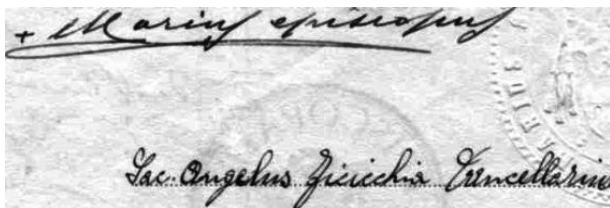 + Marius episcopus
Sac. Angelus Ficicchia Cancellarius